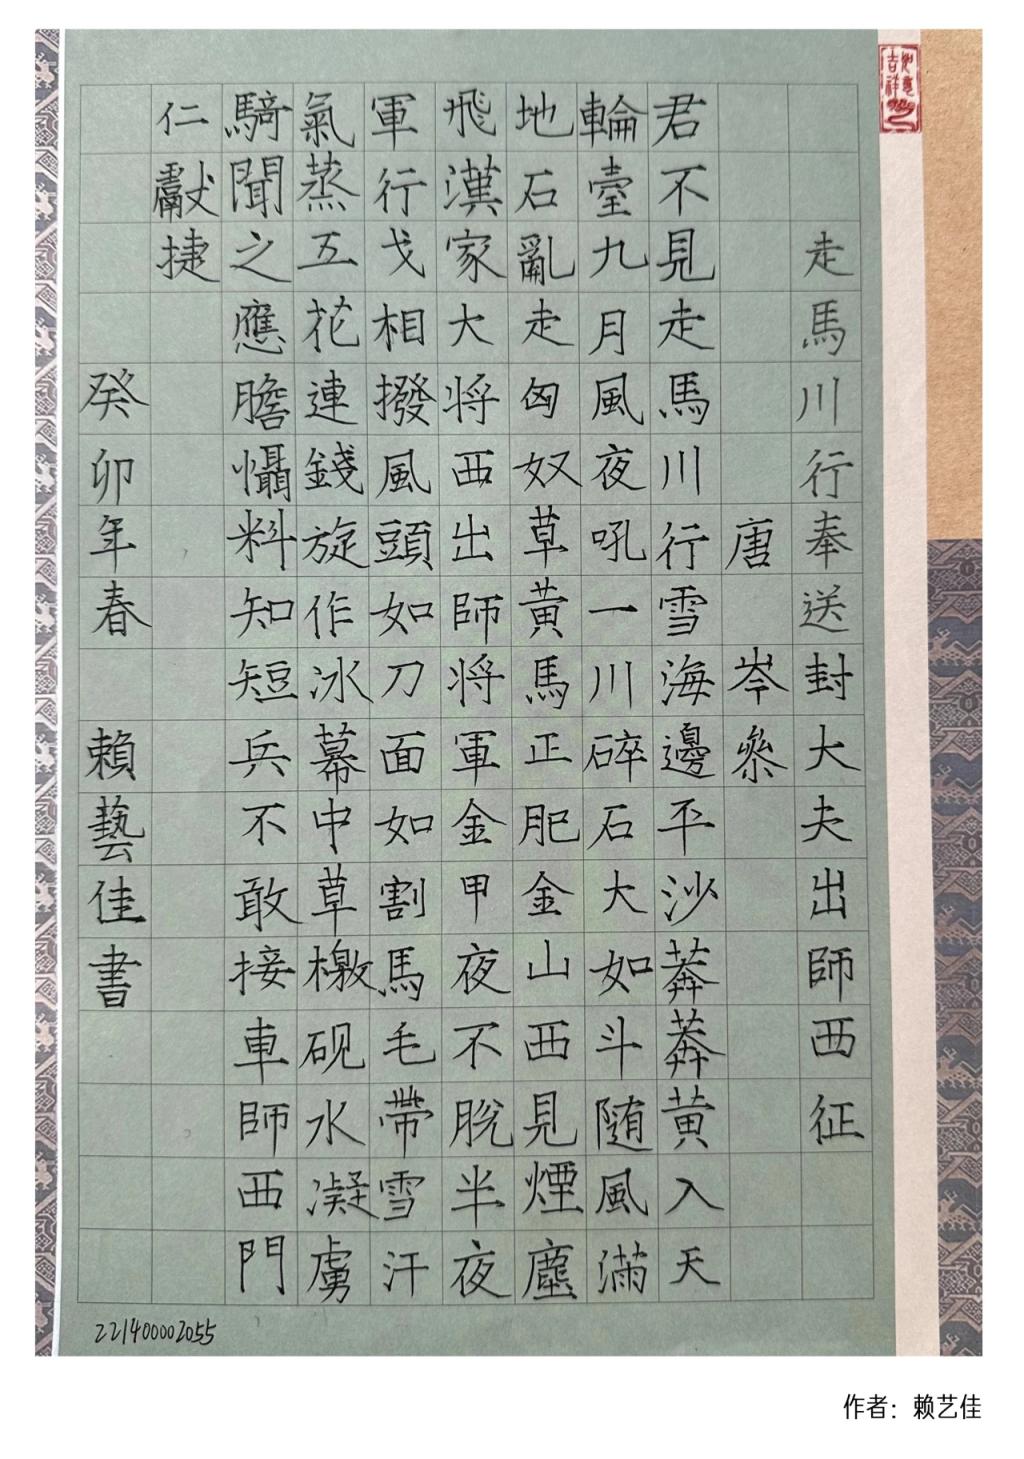 走馬川行奉送封大夫出師西征
唐 岑參
君不見走馬川行雪海邊平沙莽莽黃入天
輪臺九月風夜吼一川碎石大如斗随風滿
地石亂走匈奴草黃馬正肥金山西見煙塵
飛漢家大将西出師将軍金甲夜不脫半夜
軍行戈相撥風頭如刀面如割馬毛帶雪汗
氣蒸五花連錢旋作冰幕中草檄硯水凝虜
騎聞之應膽懾料知短兵不敢接車師西門
仁獻捷
癸卯年春 賴藝佳書
221400002055
吉祥
作者：赖艺佳